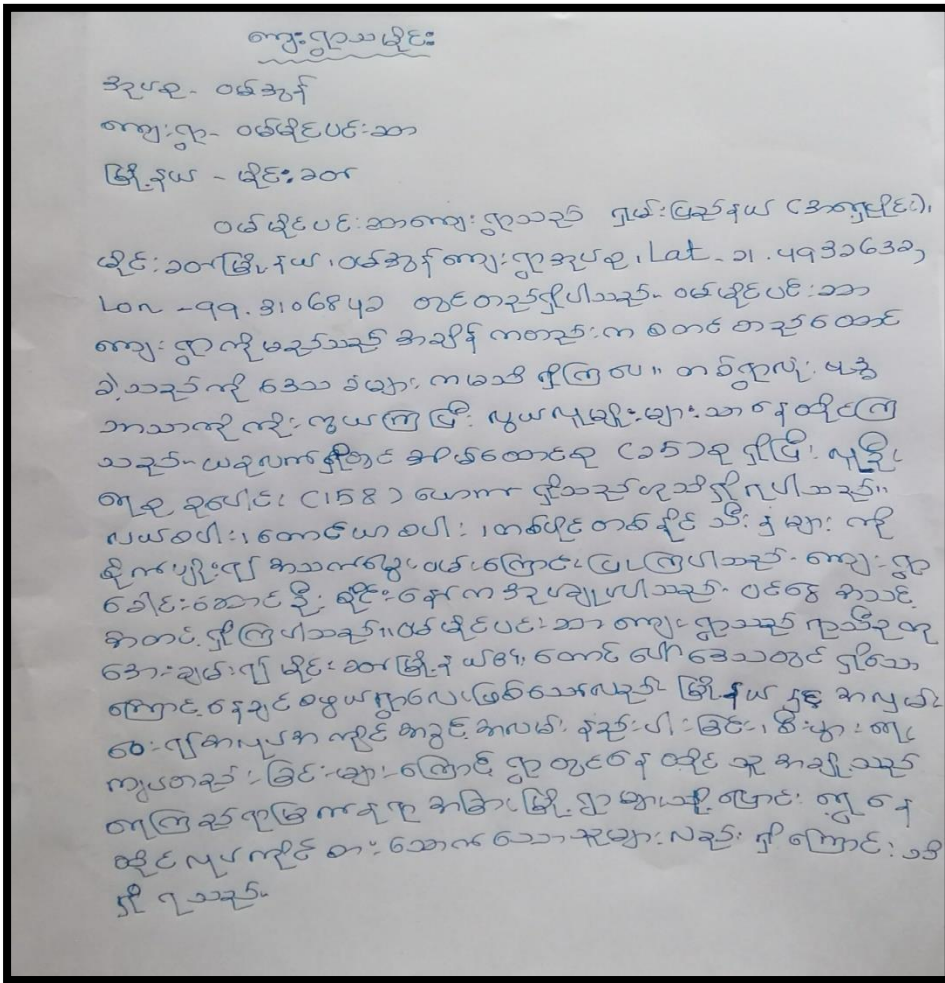 ကျေးရွာသမိုင်း
အုပ်စု - ဝမ်အွန်
ကျေးရွာ - ဝမ်မိုင်ပင်းဆာ
မြို့နယ် - မိုင်းခတ်
ဝမ်မိုင်ပင်းဆာကျေးရွာသည် ရှမ်းပြည်နယ် (အရှေ့ပိုင်း)၊
မိုင်းခတ်မြို့နယ်၊ ဝမ်အွန်ကျေးရွာအုပ်စု၊ Lat - ၂၁.၄၉၃၁၆၃၁၊
Lon - ၉၉.၃၁၀၆၈၄၁ တွင်တည်ရှိပါသည်။ ဝမ်မိုင်ပင်းဆာ
ကျေးရွာကိုမည်သည့်အချိန်ကတည်းက စတင်တည်ထောင်
ခဲ့သည်ကို ဒေသခံများကမသိရှိကြပေ။ တစ်ရွာလုံး ဗုဒ္ဓ
ဘာသာကိုကိုးကွယ်ကြပြီး လွယ်လူမျိုးများသာနေထိုင်ကြ
သည်။ ယခုလက်ရှိတွင် အိမ်ထောင်စု (၁၅)စုရှိပြီး လူဦး
ရေစုစုပေါင်း (158)ယောက် ရှိသည်ဟုသိရှိရပါသည်။
လယ်စပါး၊ တောင်ယာစပါး၊ တစ်ပိုင်တစ်နိုင်သီးနှံများကို
စိုက်ပျိုး၍အသက်မွေးဝမ်းကျောင်းပြုကြပါသည်။ ကျေးရွာ
ခေါင်းဆောင် ဦးစိုင်းနော်ကအုပ်ချုပ်ပါသည်။ ဝင်ငွေအသင့်
အတင့်ရှိကြပါသည်။ ဝမ်မိုင်ပင်းဆာကျေးရွာသည် ရာသီဥတု
အေးချမ်း၍ မိုင်းခတ်မြို့နယ်၏ တောင်ပေါ်ဒေသတွင်ရှိသော
ကြောင့် နေချင်စဖွယ်ရွာလေးဖြစ်သော်လည်း မြို့နယ်နှင့်အလှမ်း
ဝေး၍ အလုပ်အကိုင်အခွင့်အလမ်း နည်းပါးခြင်း၊ စီးပွားရေး
ကျပ်တည်းခြင်းများကြောင့် ရွာတွင်နေထိုင်သူအချို့သည်
ရေကြည်ရာမြက်နုရာ အခြားမြို့ရွာများသို့ပြောင်းရွှေ့နေ
ထိုင်လုပ်ကိုင်စားသောက်သောသူများလည်းရှိကြောင်း သိ
ရှိရသည်။